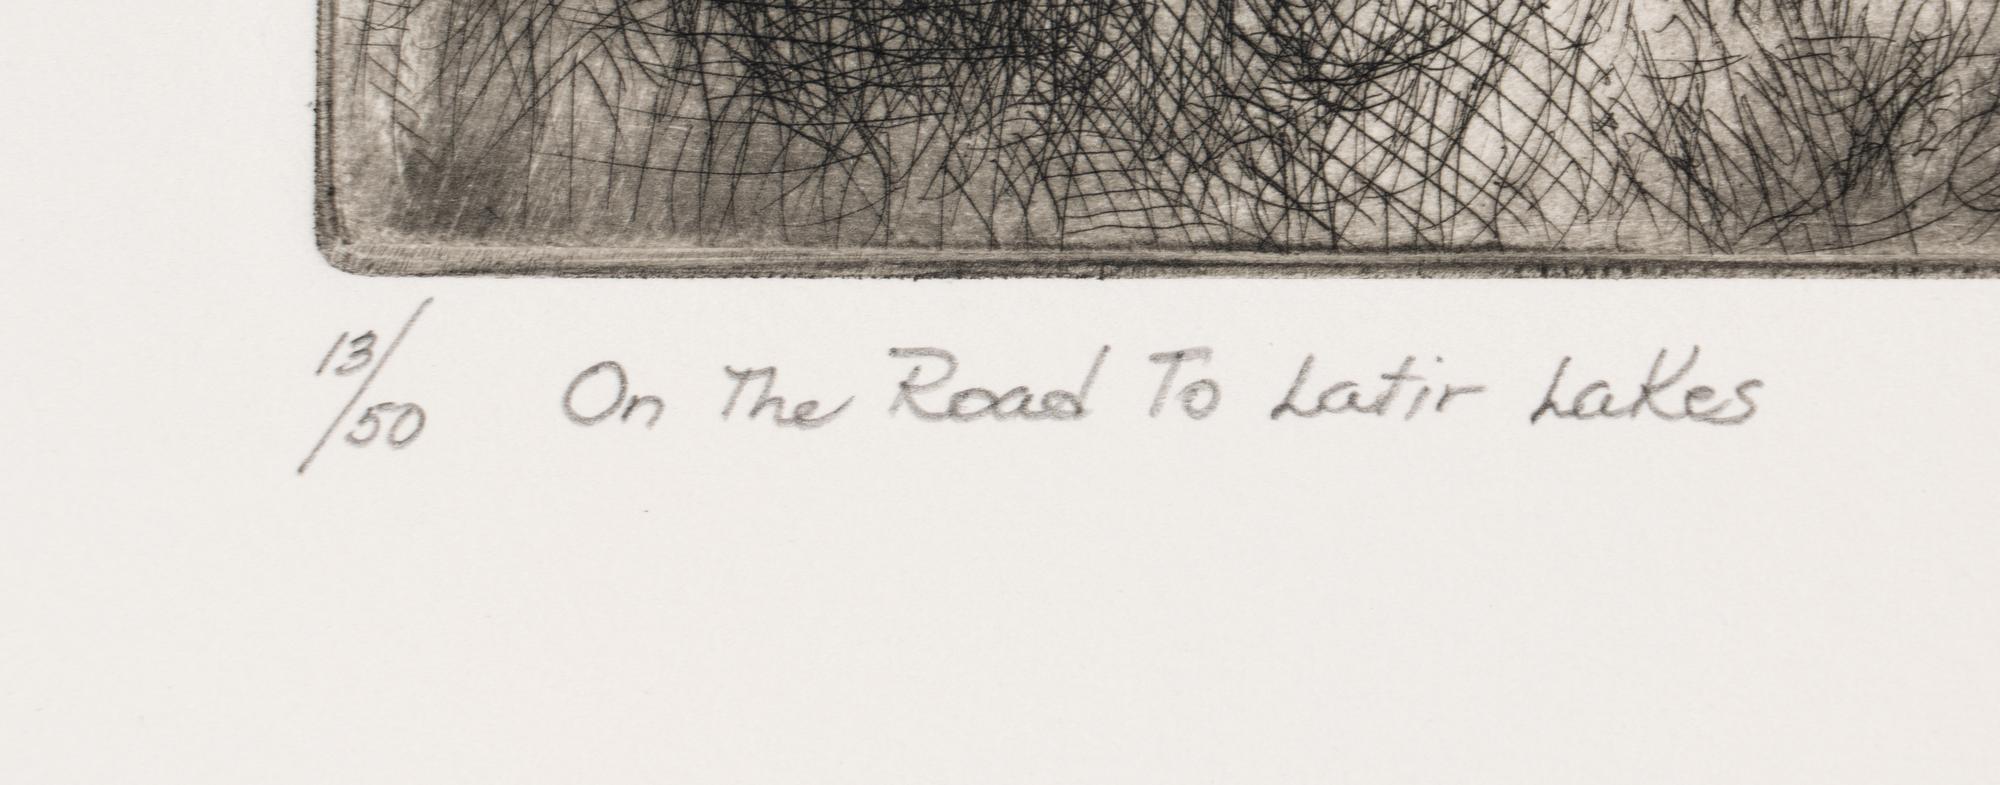 13/50 On The Road To Latir Lakes